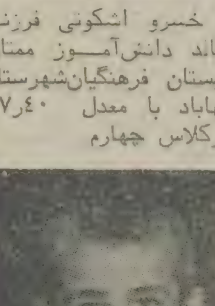 خسرو اشکونی فرزند
دانش‌آموز ممتا
ستان فرهنگیان‌شهرستا
هاباد با معدل ۴۰ر۷
کلاس چهارم